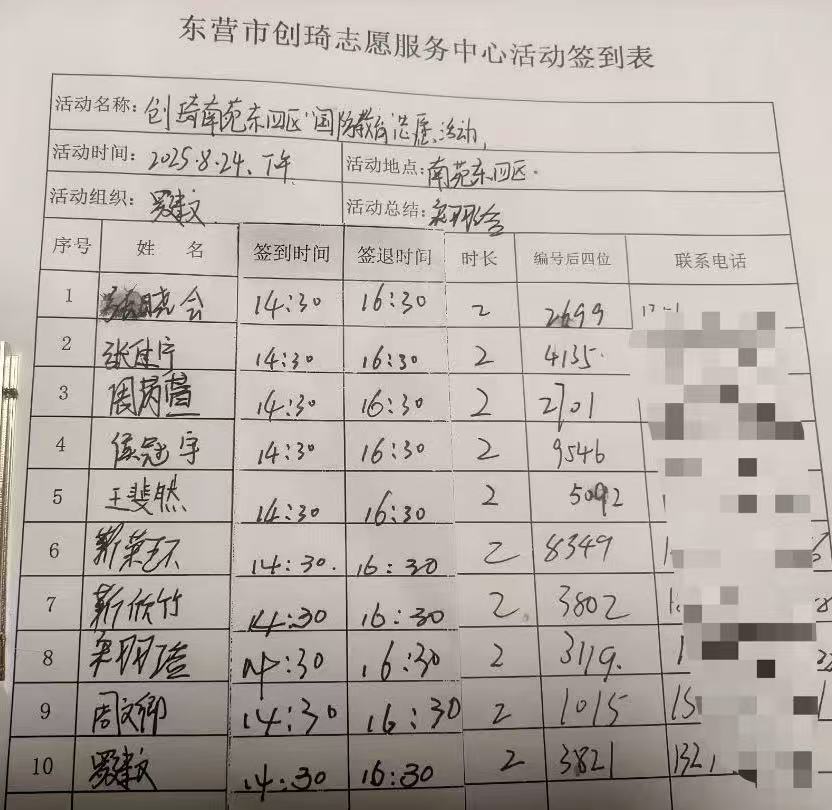 东营市创琦志愿服务中心活动签到表
活动名称：创琦南苑东四区"国防教育志愿活动
活动时间：2025.8.24.下午 活动地点：南苑东四区.
活动组织：罗建文 活动总结：
序号 姓 名 签到时间 签退时间 时长 编号后四位 联系电话
1 晓会 14:30 16:30 2 2699
2 张佳宁 14:30 16:30 2 4135.
3 周芮萱 14:30 16:30 2 2701
4 侯冠宇 14:30 16:30 2 9546
5 王斐然 14:30 16:30 2 5092
6 14:30. 16:30 2 8349
7 靳欣竹 14:30 16:30 2. 3802
8 14:30 16:30 2 3119.
9 周文卿 14:30 16:30 2 1015 15
10 罗建文 14:30 16:30 2 3821 132